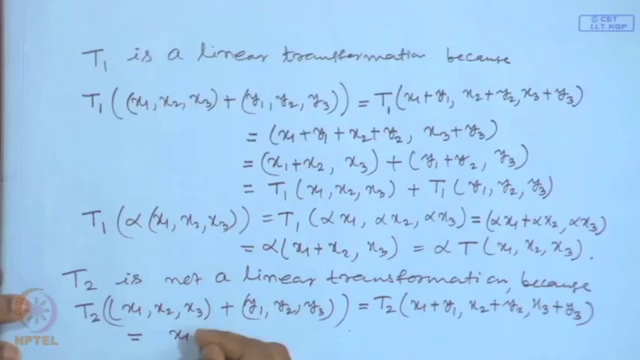 © CET
I.I.T. KGP
T₁ is a linear transformation because
T₁((x₁, x₂, x₃) + (y₁, y₂, y₃)) = T₁(x₁+y₁, x₂+y₂, x₃+y₃)
= (x₁+y₁+x₂+y₂, x₃+y₃)
= (x₁+x₂, x₃) + (y₁+y₂, y₃)
= T₁(x₁, x₂, x₃) + T₁(y₁, y₂, y₃)
T₁(α(x₁, x₂, x₃)) = T₁(αx₁, αx₂, αx₃) = (αx₁+αx₂, αx₃)
= α(x₁+x₂, x₃) = αT(x₁, x₂, x₃).
T₂ is not a linear transformation, because
T₂((x₁, x₂, x₃) + (y₁, y₂, y₃)) = T₂(x₁+y₁, x₂+y₂, x₃+y₃)
= x₁
NPTEL